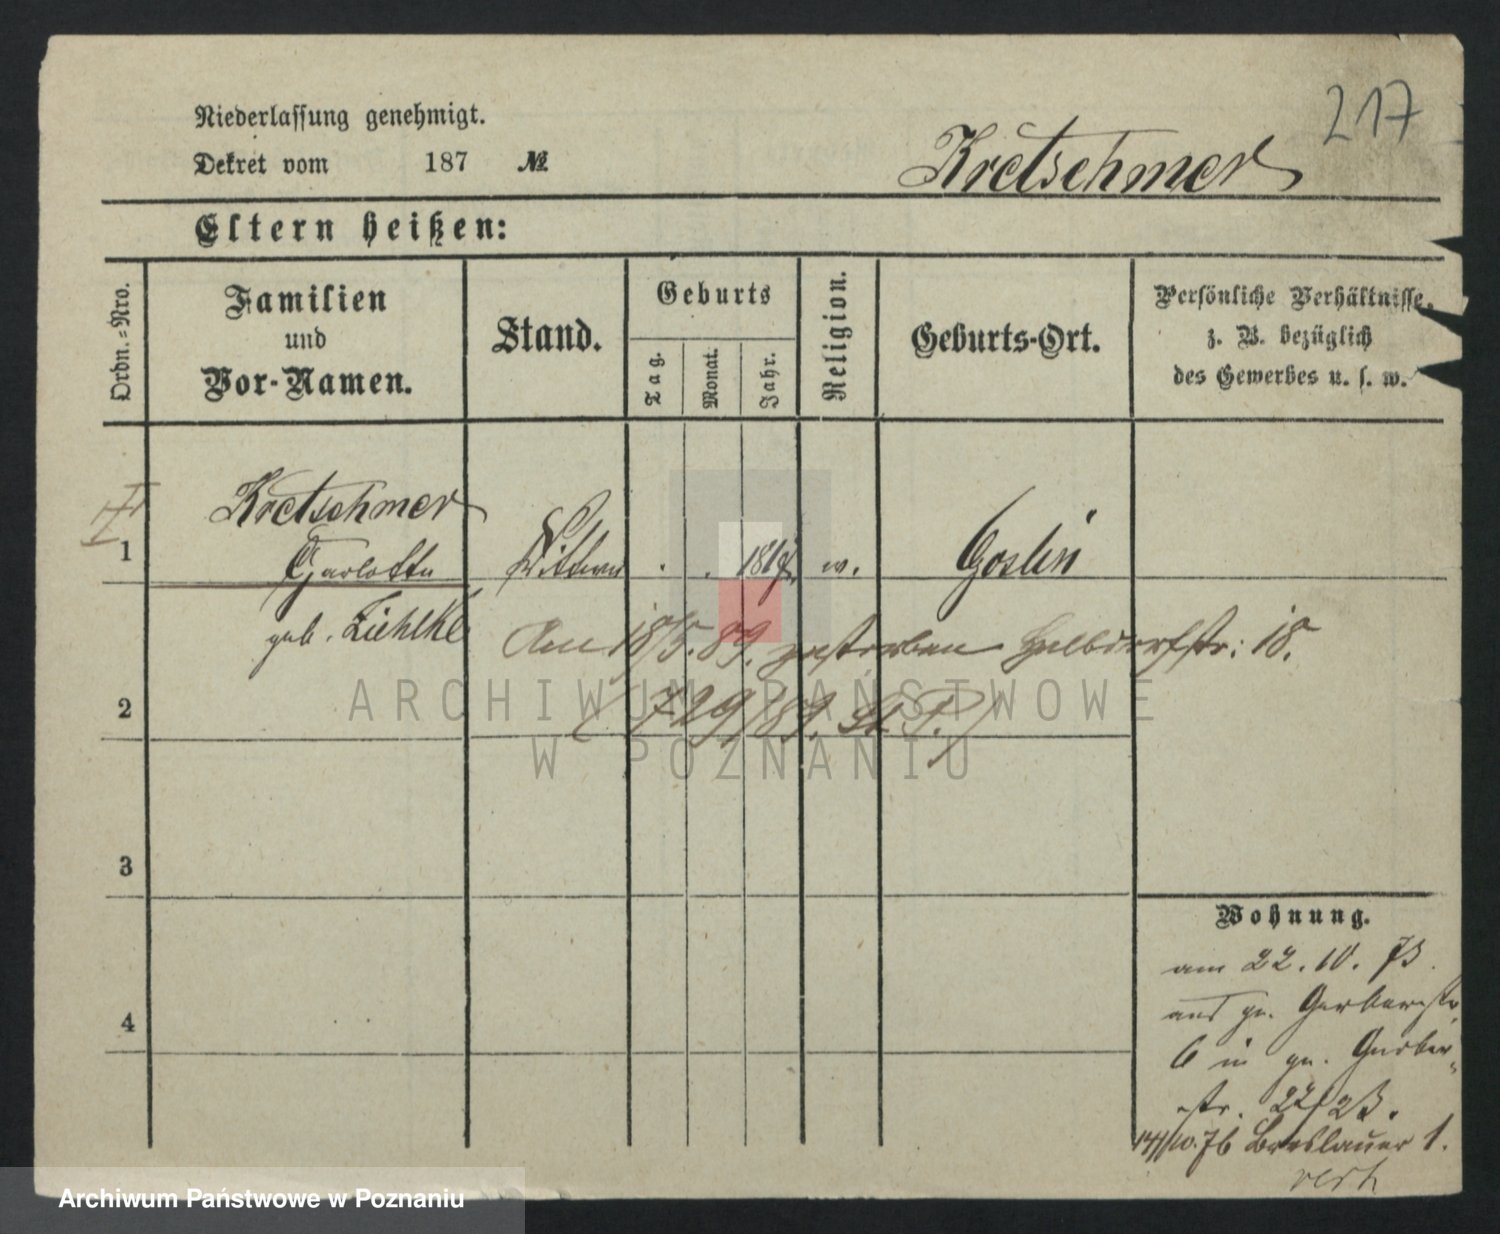 217
Niederlassung genehmigt.
Dekret vom 187 №
Kretschmer
Eltern heißen:
Ordn.-Nro.
Familien
und
Vor-Namen.
Stand.
Geburts
Tag.
Monat.
Jahr.
Religion.
Geburts-Ort.
Persönliche Verhältnisse,
z. B. bezüglich
des Gewerbes u. s. w.
1
Kretschmer
Charlotte
geb. Ziehlke
Wittwe
Goslin
Am 18/5. 89. gestorben Halbdorfstr: 18.
(729/89. St. P.)
2
3
4
Wohnung.
am 22. 10. 73.
aus gr. Gerberstr.
6 in gr. Gerber-
str. 22/23.
14/10. 76 Breslauer 1.
ARCHIWUM PAŃSTWOWE
W POZNANIU
Archiwum Państwowe w Poznaniu